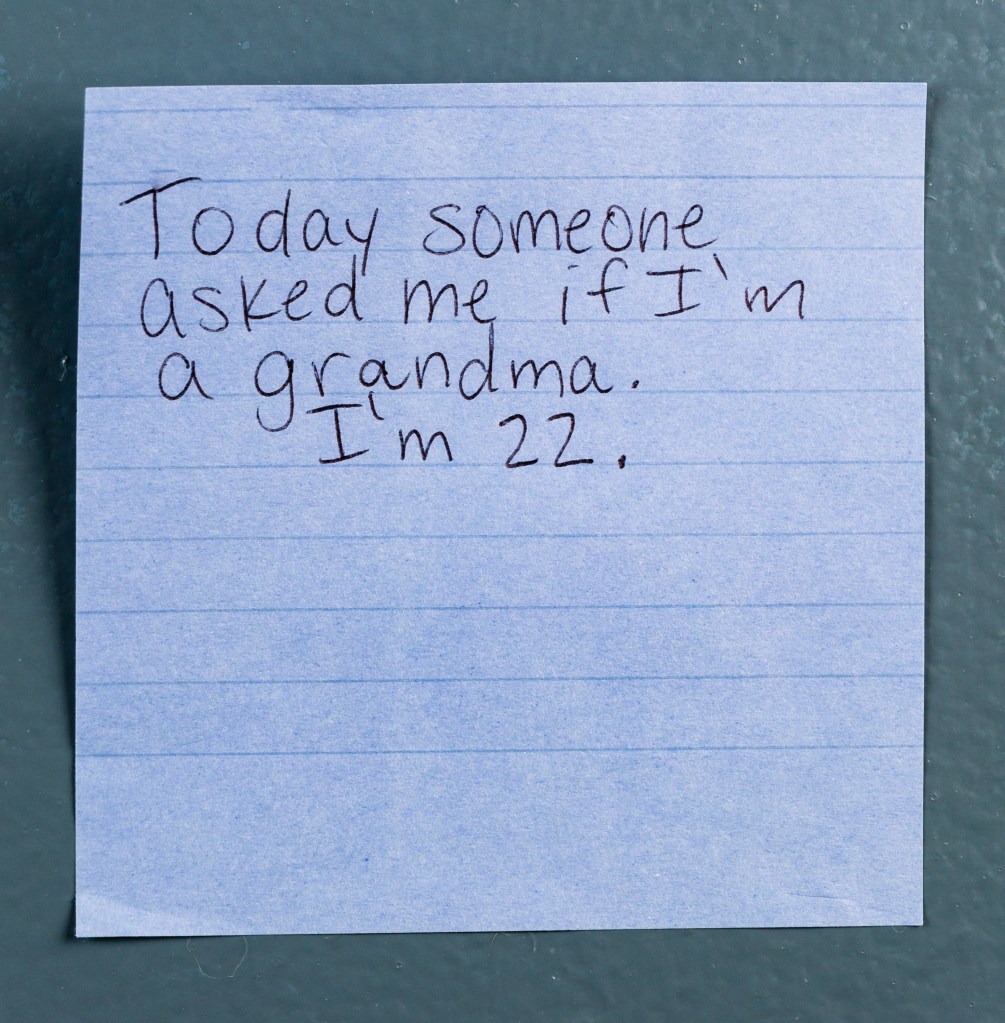 Today someone
asked me if I'm
a grandma.
I'm 22.